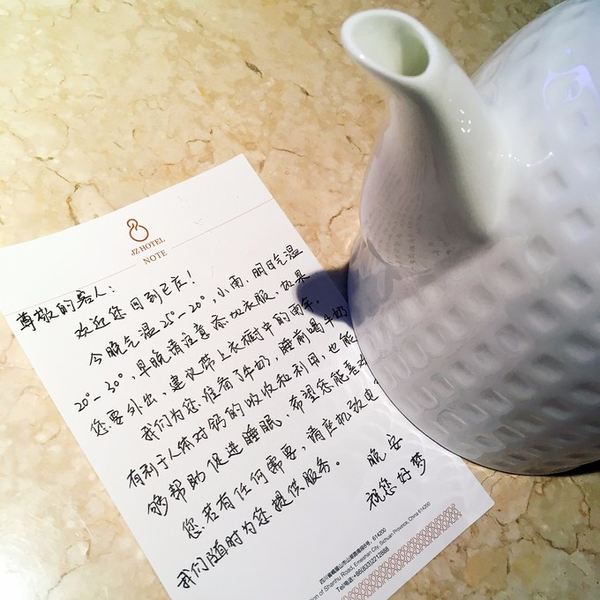 JZ HOTEL
NOTE
尊敬的客人:
欢迎您回到己庄!
今晚气温25°-20°,小雨,明日气温
20°-30°,早晚请注意添加衣服,如果
您要外出,建议带上衣橱中的雨伞。
我们为您准备了牛奶,睡前喝牛奶
有利于人体对钙的吸收和利用,也能
够帮助促进睡眠,希望您能喜欢
您若有任何需要,请座机致电
我们随时为您提供服务。
晚安
祝您好梦
614200
of Shanhu Road, Emeishan City, Sichuan Province, China 614200
Tel/电话:+86(833)2212888